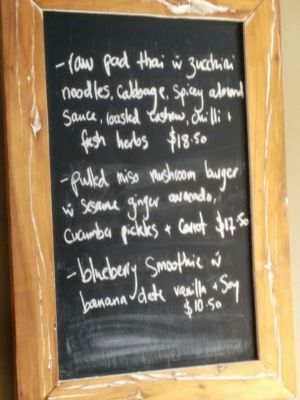 - raw pad thai w zucchini
noodles, Cabbage, Spicy almond
Sauce, roasted Cashew, chilli +
fresh herbs $18.50
- pulled miso mushroom burger
w sesame ginger avocado,
cucumber pickles + carrot $17.50
- blueberry Smoothie w
banana date vanilla + Soy
$10.50